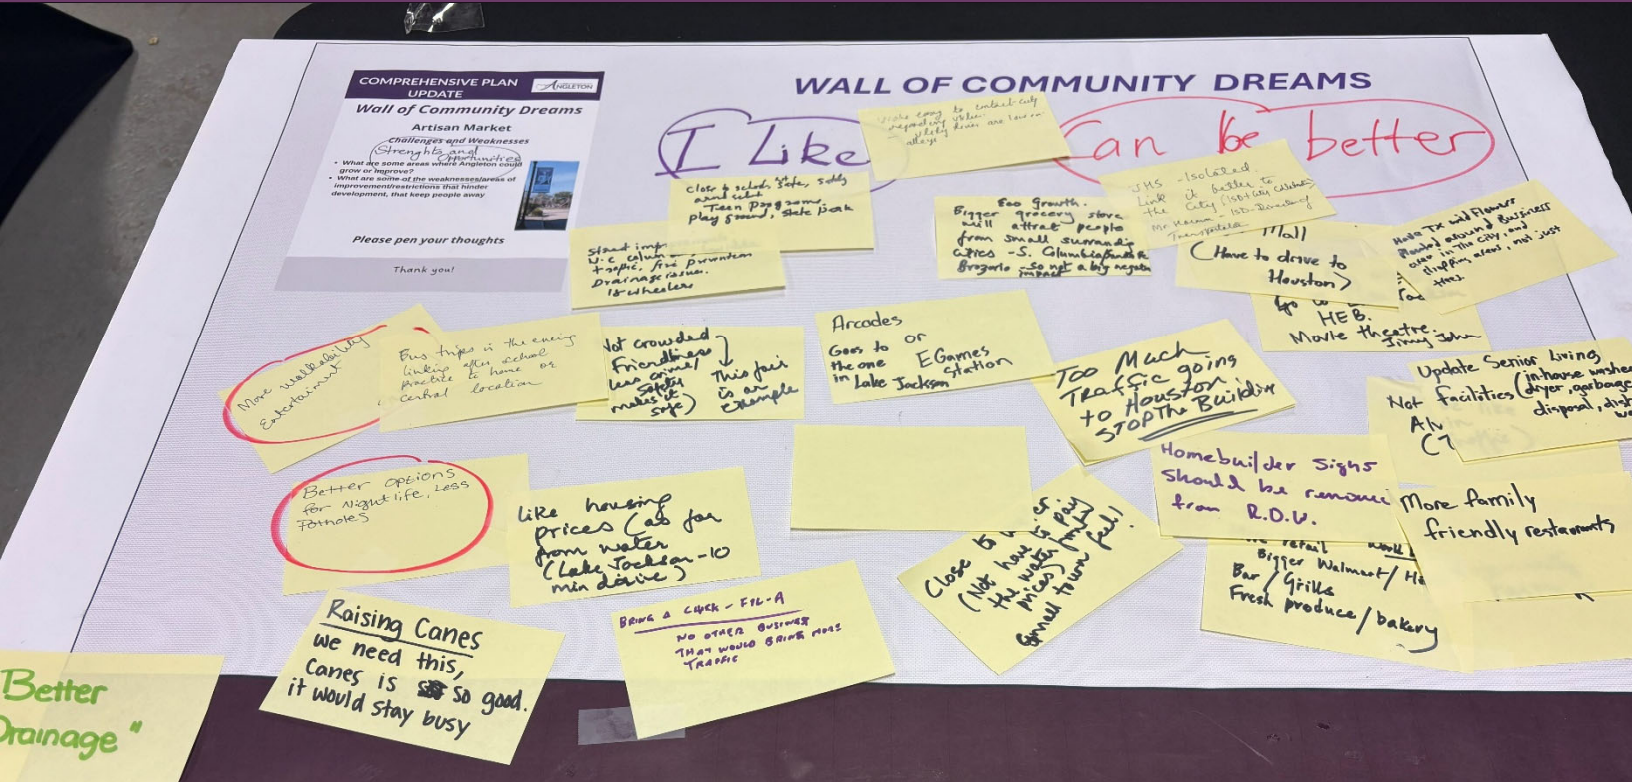 COMPREHENSIVE PLAN
UPDATE
ANGLETON
Wall of Community Dreams
Artisan Market
Challenges and Weaknesses
Strenghts and
Opportunities
• What are some areas where Angleton could
grow or improve?
• What are some of the weaknesses/areas of
improvement/restrictions that hinder
development, that keep people away
Please pen your thoughts
Thank you!
WALL OF COMMUNITY DREAMS
I Like
Can be better
easy to contact city
regarding
Utility lines are low in
alleys
Close to schools, safe,
Teen programs,
play ground, state park
Street imp
traffic, fire prevention
Drainage issue.
Eco Growth.
Bigger grocery store
will attrat people
from small surrandi
cities - S. Columbia
Brazoria - so not a big negative
impact
JHS - Isolated.
Link it better to
the City
Mall
(Have to drive to
Houston)
TX wild Flowers
Planted around Business
area in the city, and
shopping areas, not just
trees.
Go to
HEB.
Movie theatre.
Jimmy John
More walkability
Entertainment
Bus trips in the evening
linking after school
practice to home or
central location
Not crowded
Friendliness
Less crime/
Safety
makes it
safe)
This fair
is an
example
Arcades
or
Goes to
the one
in Lake Jackson
EGames
Station
Too Much
Traffic going
to Houston
STOP The Buildin
Update Senior Living
Not facilities (in-house washer
dryer, garbage
disposal, dish
Better options
for Nightlife, Less
Potholes
Like housing
prices (as far
from water
(Lake Jackson - 10
min drive)
Close to
(Not have to pay
the water front
prices)
Small town feel!
Homebuilder signs
should be
from R.O.W.
More family
friendly restaurants
retail
Bigger Walmart/
Bar/Grills
Fresh produce/bakery
Raising Canes
we need this,
Canes is so good.
it would stay busy
BRING A CHICK-FIL-A
NO OTHER BUSINESS
THAT WOULD BRING MORE
TRAFFIC
"Better
Drainage"